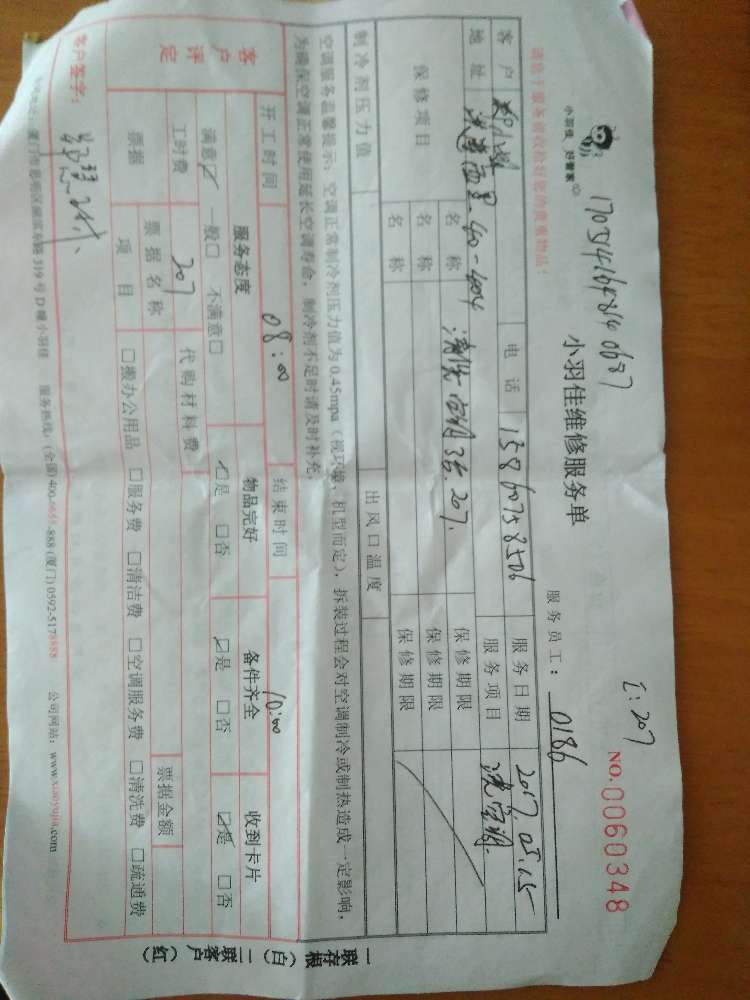 小羽佳 好管家
1705141648140637
E:207
NO.0060348
小羽佳维修服务单
服务员工：0186
请您于服务前收拾好您的贵重物品！
客户 电话 13860758506 服务日期 2017.05.15
地址 40-404 服务项目 洗空调
保修项目 名称 清洗空调3台.207. 保修期限
名称 保修期限
名称 保修期限
制冷剂压力值 出风口温度
空调服务温馨提示：空调正常制冷剂压力值为0.45mpa（视环境，机型而定），拆装过程会对空调制冷或制热造成一定影响，
为确保空调正常使用延长空调寿命，制冷剂不足时请及时补充。
开工时间 08:00 结束时间 10:00
客户评定 服务态度 物品完好 备件齐全 收到卡片
满意☑ 一般□ 不满意□ ☑是 □否 ☑是 □否 ☑是 □否
工时费 207 代购材料费
票据 票据名称 票据金额
项目 □搬办公用品 □服务费 □清洁费 □空调服务费 □清洗费 □疏通费
客户签字：
319号D幢小羽佳 服务热线：(全国)400-666-8888(厦门)0592-5178888 公司网站：www.xiaoyujia.com
一联存根（白）二联客户（红）